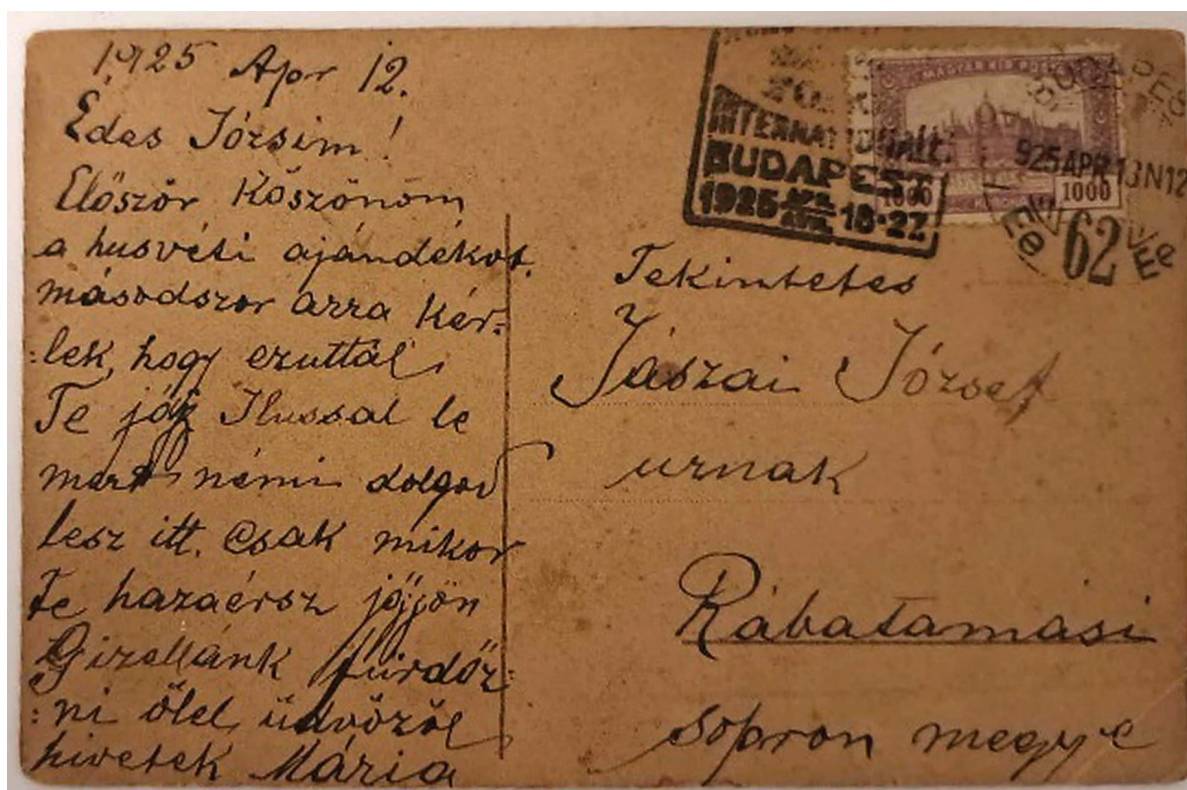 1925 Apr 12.
Édes Józsim!
Először Köszönöm
a husvéti ajándékot.
másodszor arra kér-
:lek, hogy ezuttál
Te jöjj Ilussal le
mert némi dolgod
lesz itt. Csak mikor
te hazaérsz jöjjön
Gizellánk fürdőz-
:ni ölel, üdvözöl
hivetek Mária
INTERNATIONALE
BUDAPEST
1925 18-27
MAGYAR KIR. POSTA
1000
1000
BUDAPEST
925 APR 13 N12
62
Ee
Ee
Tekintetes
Jászai József
urnak
Rábatamási
sopron megye